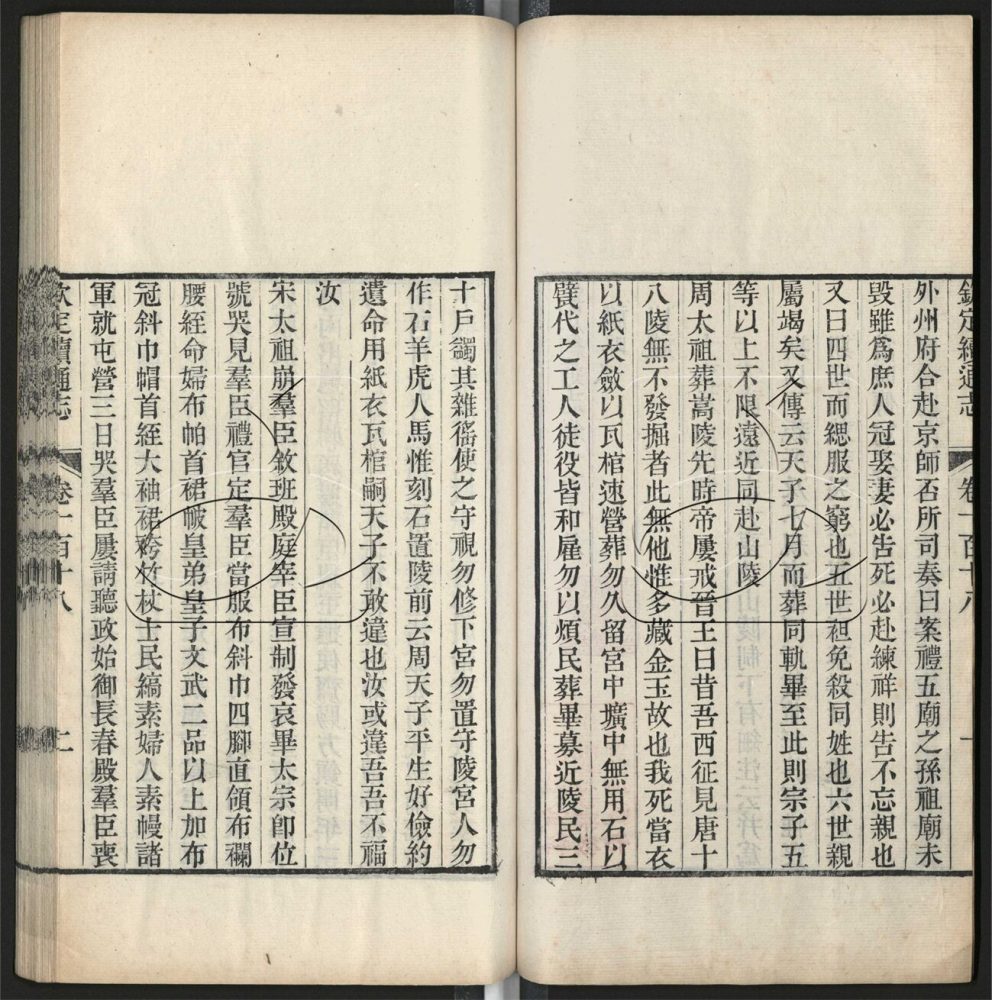 欽定續通志 卷一百十八 一
外州府合赴京師否所司奏曰案禮五廟之孫祖廟未
毀雖爲庶人冠娶妻必告死必赴練祥則告不忘親也
又曰四世而緦服之窮也五世袒免殺同姓也六世親
屬竭矣又傳云天子七月而葬同軌畢至此則宗子五
等以上不限遠近同赴山陵
周太祖葬嵩陵先時帝屢戒晉王曰昔吾西征見唐十
八陵無不發掘者此無他惟多藏金玉故也我死當衣
以紙衣斂以瓦棺速營葬勿久留宮中壙中無用石以
甓代之工人徒役皆和雇勿以煩民葬畢募近陵民三
十戶蠲其雜徭使之守視勿修下宮勿置守陵宮人勿
作石羊虎人馬惟刻石置陵前云周天子平生好儉約
遺命用紙衣瓦棺嗣天子不敢違也汝或違吾吾不福
汝
宋太祖崩羣臣敘班殿庭宰臣宣制發哀畢太宗卽位
號哭見羣臣禮官定羣臣當服布斜巾四腳直領布襴
腰絰命婦布帕首裙帔皇弟皇子文武二品以上加布
冠斜巾帽首絰大袖裙袴竹杖士民縞素婦人素幔諸
軍就屯營三日哭羣臣屢請聽政始御長春殿羣臣喪
欽定續通志 卷一百十八 二